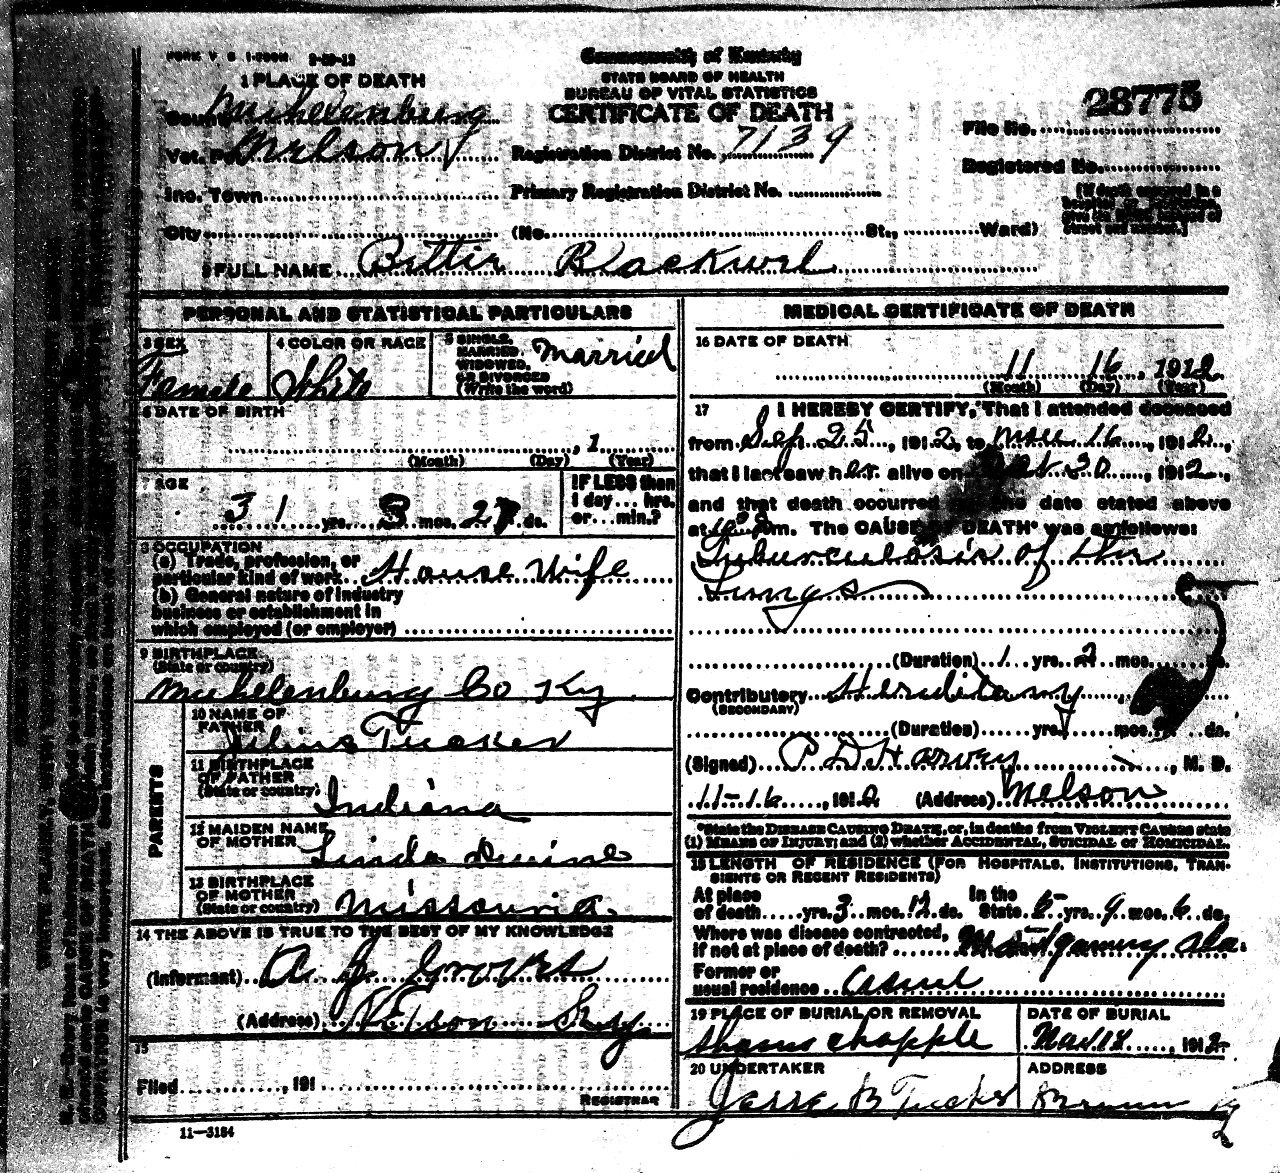 FORM V. S. 1-500M 9-20-12
Commonwealth of Kentucky
STATE BOARD OF HEALTH
BUREAU OF VITAL STATISTICS
CERTIFICATE OF DEATH
1 PLACE OF DEATH
County Muhelenburg
Vot. P Nelson
Inc. Town
City (No. St., Ward)
Registration District No. 7139
Primary Registration District No.
28775
File No.
Registered No.
[If death occurred in a
hospital or institution,
give its NAME instead of
street and number.]
2 FULL NAME Bettie Blackwel
PERSONAL AND STATISTICAL PARTICULARS
3 SEX Famale
4 COLOR OR RACE White
5 SINGLE, MARRIED, WIDOWED, OR DIVORCED (Write the word) Married
6 DATE OF BIRTH
, 1
(Month) (Day) (Year)
7 AGE
31 yrs. 3 mos. 27 ds.
IF LESS than
1 day ... hrs.
or ... min.?
8 OCCUPATION
(a) Trade, profession, or
particular kind of work House Wife
(b) General nature of industry
business or establishment in
which employed (or employer)
9 BIRTHPLACE
(State or country)
Muhelenburg Co Ky.
PARENTS
10 NAME OF
FATHER
Julius Tucker
11 BIRTHPLACE
OF FATHER
(State or country) Indiana
12 MAIDEN NAME
OF MOTHER Linda
13 BIRTHPLACE
OF MOTHER
(State or country) Missouria.
14 THE ABOVE IS TRUE TO THE BEST OF MY KNOWLEDGE
(Informant) A J
(Address) Nelson Ky
15
Filed , 191
REGISTRAR
11—3184
MEDICAL CERTIFICATE OF DEATH
16 DATE OF DEATH
11 16, 1912
(Month) (Day) (Year)
17 I HEREBY CERTIFY, That I attended deceased
from Sep 25, 1912, to 16, 1912,
that I last saw her alive on 30, 1912,
and that death occurred on the date stated above
at m. The CAUSE OF DEATH* was as follows:
Tuberculosis of the
Lungs
(Duration) 1 yrs. 2 mos. ds.
Contributory Hereditary
(SECONDARY)
(Duration) yrs. mos. ds.
(Signed) P D Harvey, M. D.
11-16, 1912 (Address) Nelson
*State the DISEASE CAUSING DEATH, or, in deaths from VIOLENT CAUSES state
(1) MEANS OF INJURY; and (2) whether ACCIDENTAL, SUICIDAL or HOMICIDAL.
18 LENGTH OF RESIDENCE (FOR HOSPITALS, INSTITUTIONS, TRAN-
SIENTS OR RECENT RESIDENTS)
At place In the
of death yrs. 3 mos. 12 ds. State 6 yrs. 9 mos. 6 ds.
Where was disease contracted,
if not at place of death? Montgamury Ala.
Former or
usual residence
19 PLACE OF BURIAL OR REMOVAL
Sharus Chapple
DATE OF BURIAL
Nov 18, 1912
20 UNDERTAKER
B Tucker
ADDRESS
Ky